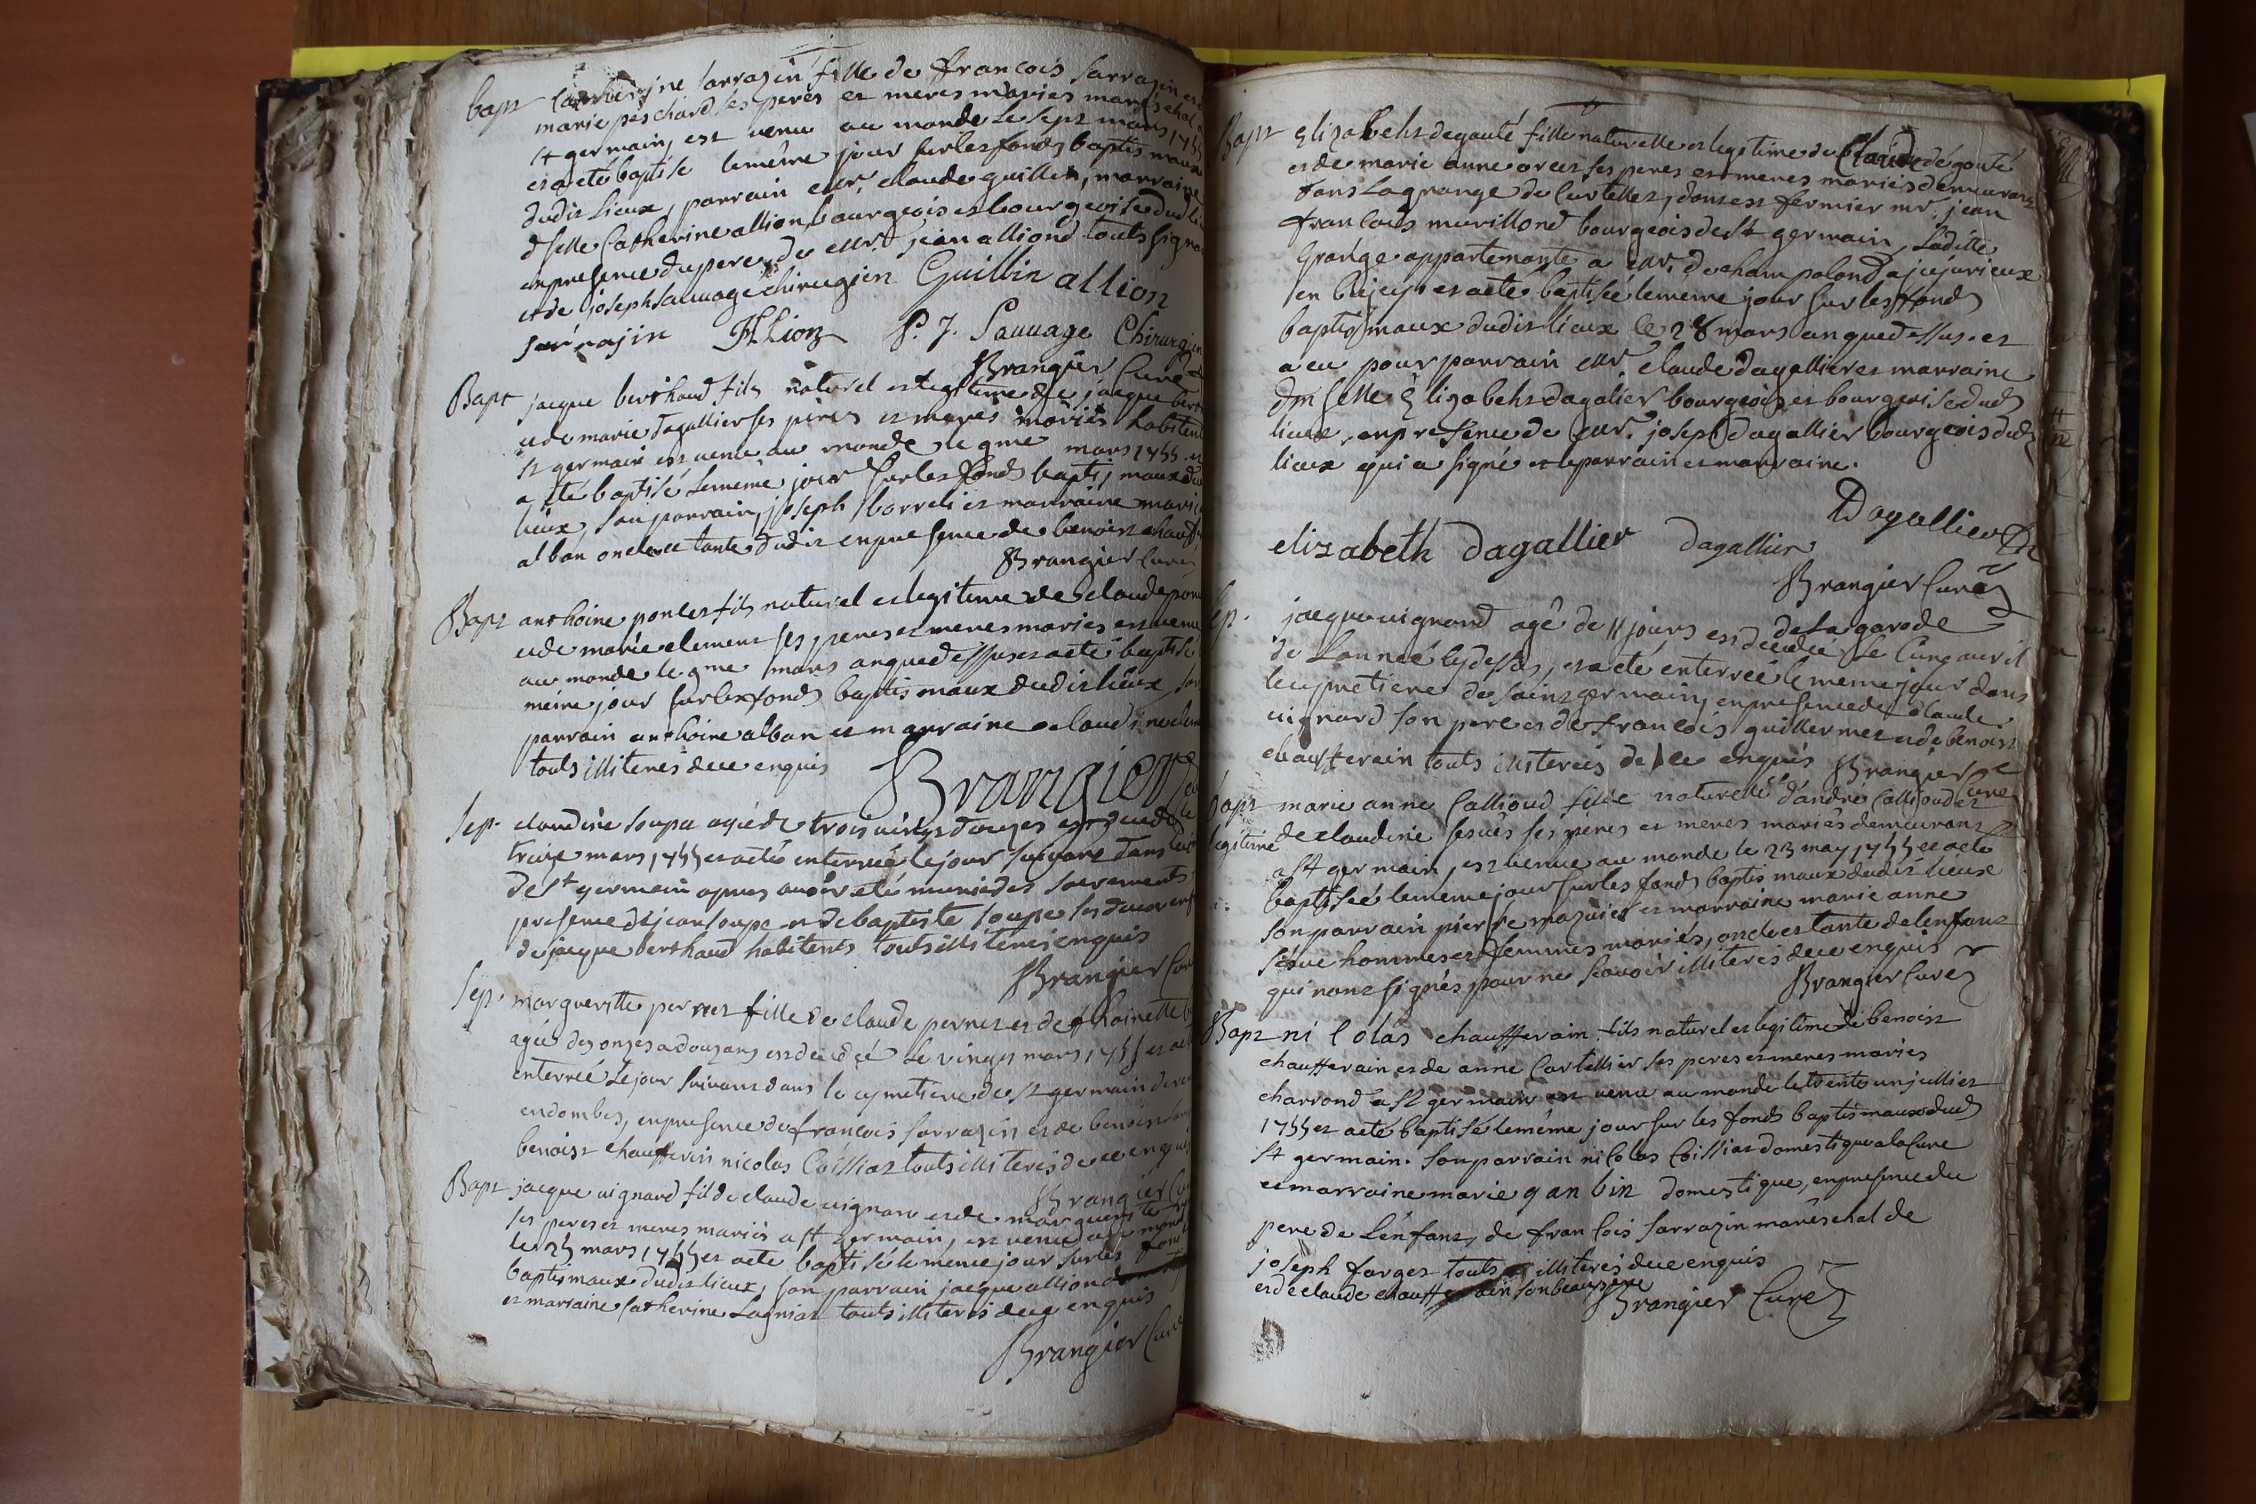 bapt Catherine sarrazin fille de francois sarrazin et de
marie peschard ses peres et meres mariés maréschal a
st germain, est venu au monde le sept mars 1755
et a eté baptisé le même jour sur les fonds baptismaux
dudit lieux, parrain mr. claude guillin, marraine
dselle Catherine allion, bourgeois et bourgeoise dud lieux
en presence du pere, de mr. jean alliond touts signés
et de joseph sauvage chirugien Guillin allion
sarrasin Allion P. J. Sauvage Chirurgien
Brangier Curé
Bapt jacque berthaud fils naturel et legitime de jacque bert
et de marie dagallier ses pères et meres mariés habitent
st germain est venu au monde le 9me mars 1755 et
a eté baptisé le même jour sur les fonds baptismaux dud
lieux son parrain joseph borreli et marraine marie
alban oncle et tante dudit en presence de benoist chauff
Brangier Curé
Bapt anthoine poncet fils naturel et legitime de claude pon
et de marie clement ses peres et meres mariés est venu
au monde le 9me mars an que dessus et a eté baptisé
même jour sur les fonds baptismaux dudit lieux son
parrain anthoine alban et marraine claudine clem
touts illiterés de ce enquis Brangier Curé
Sep. claudine soupe agée de trois vingt douzes est decedé le
treize mars 1755 et a eté enterreé le jour suivant dans le cim
de st germain apres avoir eté munie des sacrements
presence de jean soupe et de baptiste soupe ses deux enf
de jacque berthaud habitents touts illiterés enquis
Brangier Curé
Sep. marguerite perret fille de claude perret et de thoinette
agée des onzes a douz ans est decedé le vingt mars 1755 et a eté
enterreé le jour suivant dans le cymetiere de st germain de
en dombes, en presence de francois sarrazin et de benoist
benoist chaufferin nicolas Coilliat touts illiterés de ce enquis
Brangier Curé
Bapt jacque vignard fil de claude vignard et de marguerite
ses peres et meres mariés a st germain, est venu au monde
le 25 mars 1755 et a eté baptisé le même jour sur les fonds
baptismaux dudit lieux, son parrain jacque alliond
et marraine Catherine Lagniat touts illiterés de ce enquis
Brangier Curé
Bapt Elizabeht degouté fille naturelle et legitime de Claude dégouté
et de marie anne orcet ses peres et meres mariés demeurant
dans Lagrange de Curtelles, dont est fermier mr. jean
francois murillond bourgeois de st germain, Laditte
Grange appartenante a mr. de champolond a jujurieux
en Bujey et a eté baptisée le même jour sur les fonds
baptismaux dudit lieux le 28 mars an que dessus. et
a eu pour parrain mr. claude dagallier et marraine
dmselle Elizabeht dagalier bourgeois et bourgeoise dud
lieux, en presence de mr. joseph dagallier bourgeois dud
lieux qui a signé et le parrain et marraine.
Dagallier
elizabeth dagallier dagallier
Brangier Curé
de la garde
Sep. jacque vignard agé de 11 jours est decedé le Cinq avril
de Lanneé Cy dessus, et a eté enterreé le meme jour dans
le cymetiere de saint germain, en presence de claude
vignard son pere et de francois guillermet et de benoist
chaufferain touts illiterés de ce enquis Brangier
Curé
Bapt marie anne Callioud fille naturelle d'andré Callioud et
legitime de claudine sesve ses péres et meres mariés demeurant
a st germain, est venue au monde le 23 may 1755 et a eté
baptisée le meme jour sur les fonds baptismaux dudit lieux
son parrain pierre mazuier et marraine marie anne
sesve hommes et femmes mariés, oncle et tante de lenfant
qui n'ont signés pour ne scavoir illiterés de ce enquis
Brangier Curé
Bapt nicolas chaufferain fils naturel et legitime de benoist
chaufferain et de anne Cartellier ses peres et meres mariés
charrond a st germain est venu au monde le trente un jullet
1755 et a eté baptisé le même jour sur les fonds baptismaux dud
st germain. son parrain nicolas Coilliat domestique a la Cure
et marraine marie ganbin domestique, en presence du
pere de Lenfant, de francois sarrazin maréschal de
joseph farget touts illiterés de ce enquis
et de claude chaufferain son beau pere
Brangier Curé